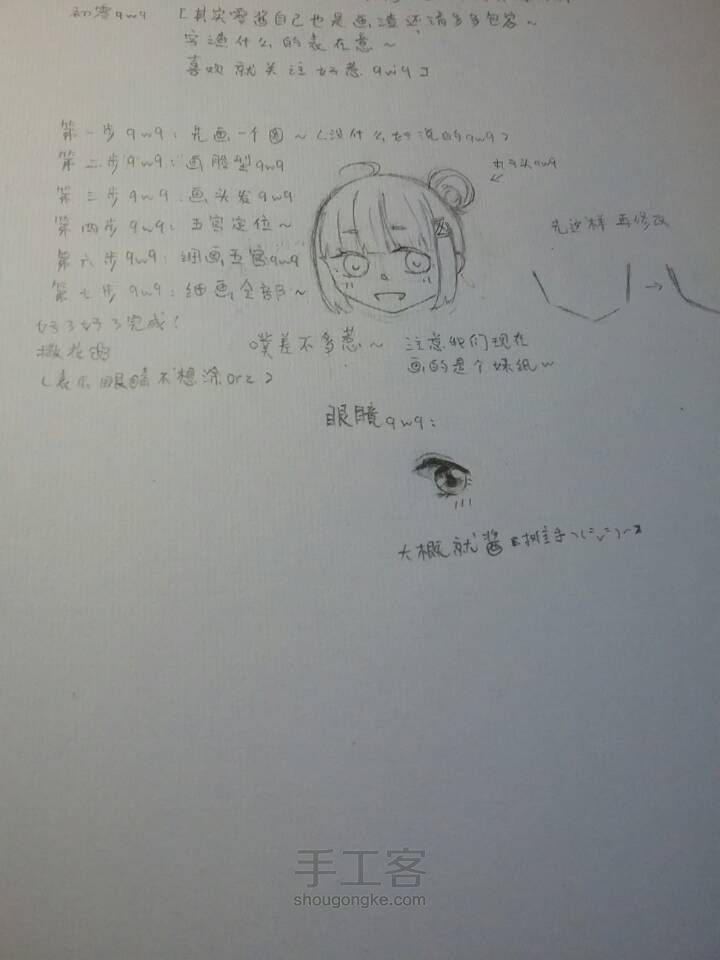 初零qwq 「其实零酱自己也是画渣还请多多包容~
写渣什么的表在意~
喜欢就关注好惹qwq」
第一步qwq：先画一个圆~（没什么好说的qwq）
第二步qwq：画脸型qwq
丸子头qwq
第三步qwq：画头发qwq
第四步qwq：五官定位~
先这样 再修改
第六步qwq：细画五官qwq
第七步qwq：细画全部~
好了好了完成！
撒花
噗差不多惹~
注意我们现在
画的是个妹纸~
（表示眼睛不想涂orz）
眼睛qwq：
大概就酱
手工客
shougongke.com